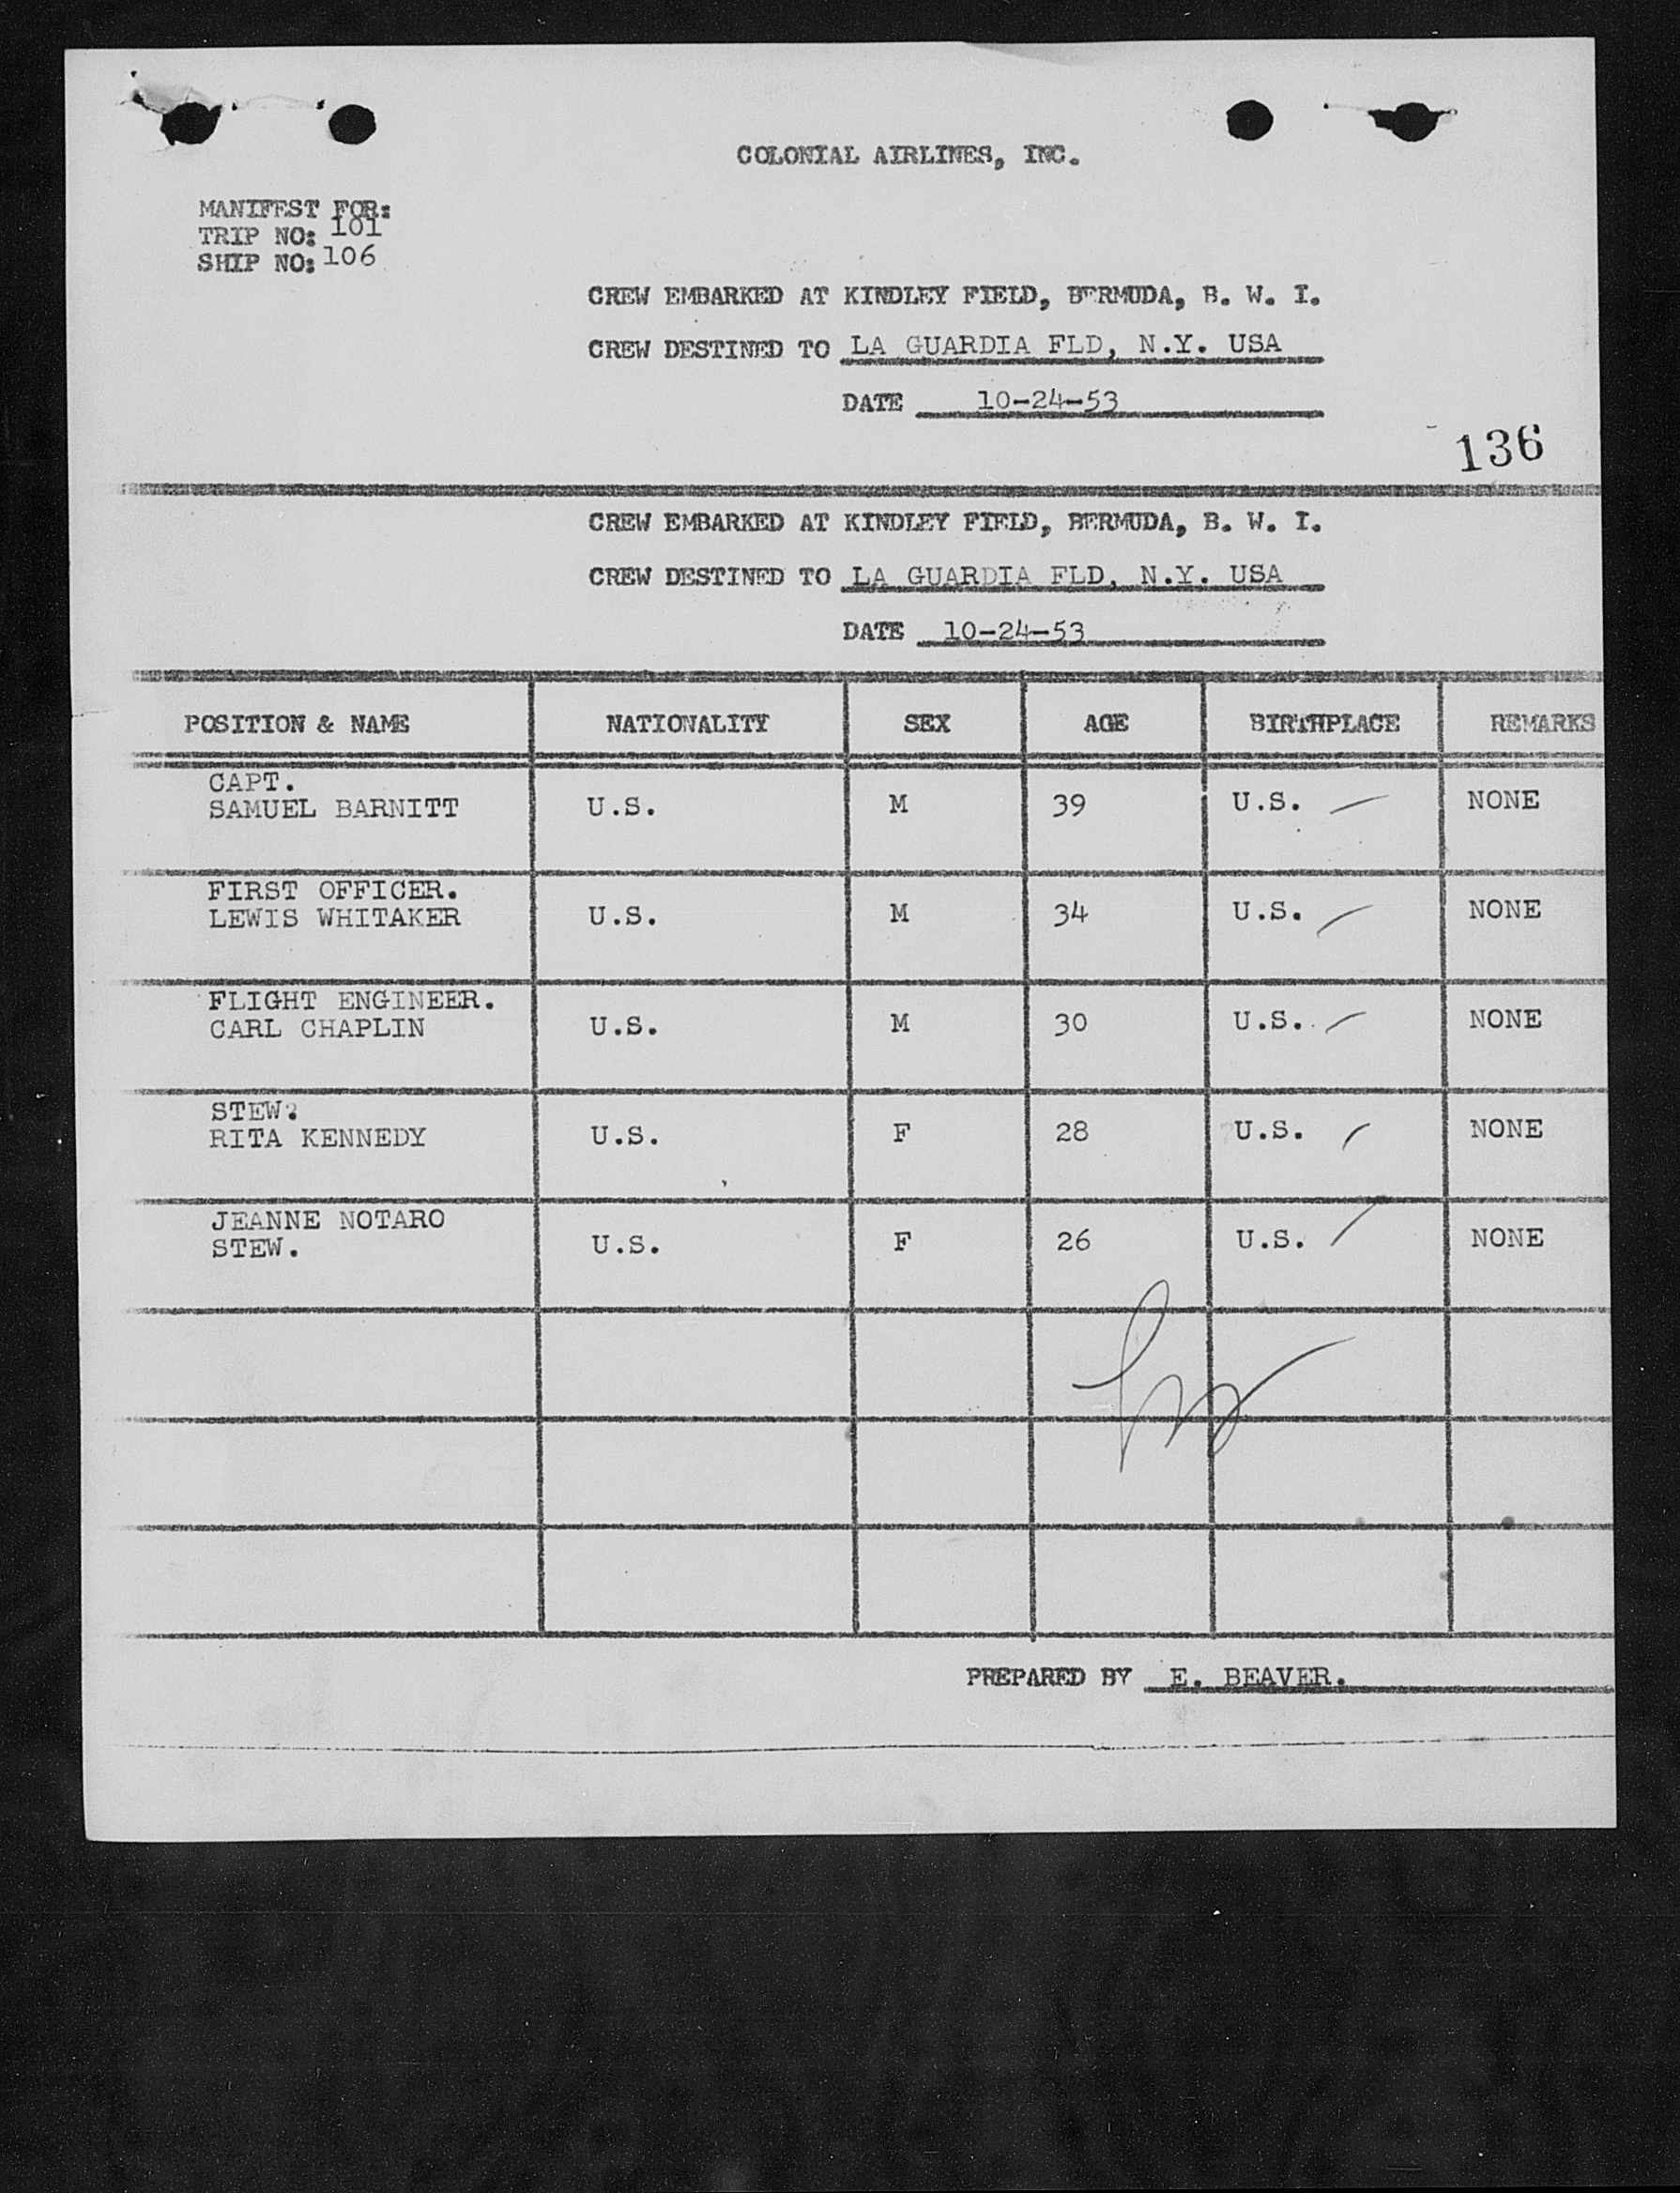 COLONIAL AIRLINES, INC.
MANIFEST FOR:
TRIP NO: 101
SHIP NO: 106
CREW EMBARKED AT KINDLEY FIELD, BERMUDA, B. W. I.
CREW DESTINED TO LA GUARDIA FLD, N.Y. USA
DATE 10-24-53
136
CREW EMBARKED AT KINDLEY FIELD, BERMUDA, B. W. I.
CREW DESTINED TO LA GUARDIA FLD, N.Y. USA
DATE 10-24-53
POSITION & NAME NATIONALITY SEX AGE BIRTHPLACE REMARKS
CAPT.
SAMUEL BARNITT U.S. M 39 U.S. NONE
FIRST OFFICER.
LEWIS WHITAKER U.S. M 34 U.S. NONE
FLIGHT ENGINEER.
CARL CHAPLIN U.S. M 30 U.S. NONE
STEW.
RITA KENNEDY U.S. F 28 U.S. NONE
JEANNE NOTARO
STEW. U.S. F 26 U.S. NONE
PREPARED BY E. BEAVER.